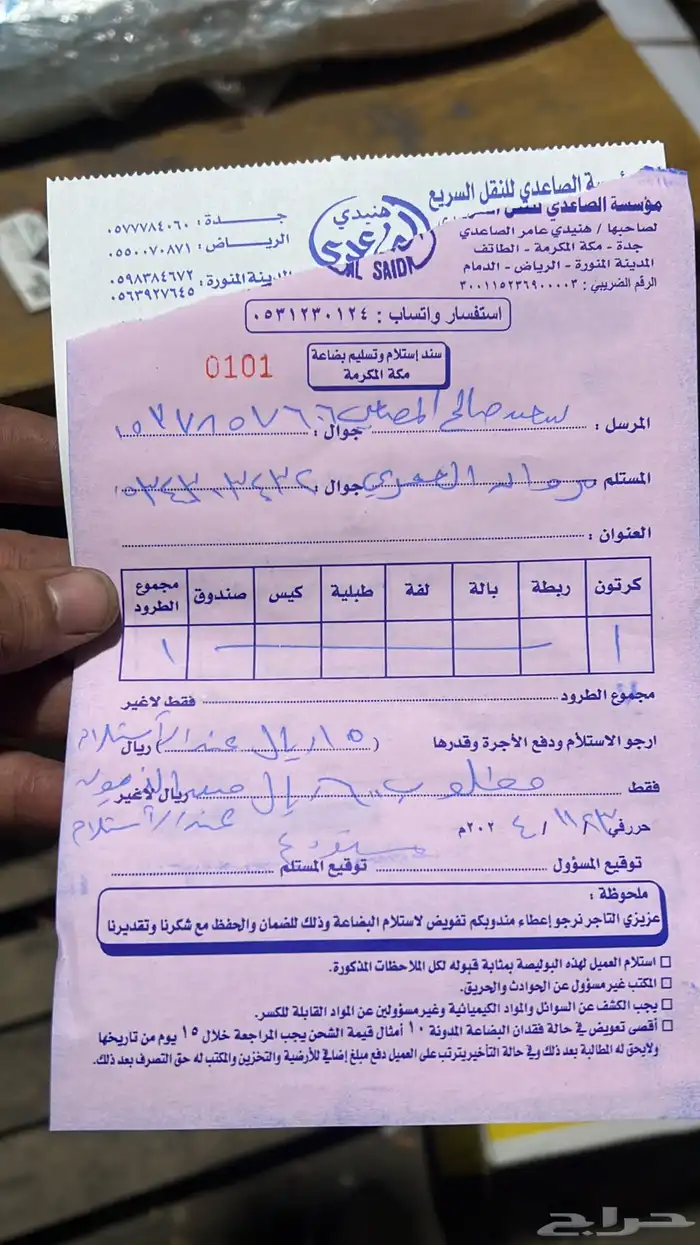 مؤسسة الصاعدي للنقل السريع
لصاحبها / هنيدي عامر الصاعدي
جدة - مكة المكرمة - الطائف
المدينة المنورة - الرياض - الدمام
الرقم الضريبي: ٣٠٠١١٥٢٣٦٩٠٠٠٠٣
هنيدي
AL SAIDI
جـــدة : ٠٥٧٧٧٨٤٠٦٠
الريـاض: ٠٥٥٠٠٧٠٨٧١
المدينة المنورة: ٠٥٩٨٣٨٤٦٧٢
٠٥٦٣٩٢٧٦٤٥
استفسار واتساب : ٠٥٣١٢٣٠١٢٤
سند إستلام وتسليم بضاعة
مكة المكرمة
0101
المرسل : سعيد صالح جوال :
المستلم العمري جوال :
العنوان :
كرتون ربطة بالة لفة طبلية كيس صندوق مجموع الطرود
١ ١
مجموع الطرود فقط لاغير
ارجو الاستلام ودفع الأجرة وقدرها ( ١٥ ريال عند الأستلام ) ريال
فقط مطلوب ريال ريال لاغير
عند الأستلام
حرر في ٢٣ / ١١ / ٢٠٢٤م
توقيع المسؤول توقيع المستلم
ملحوظة :
عزيزي التاجر نرجو إعطاء مندوبكم تفويض لاستلام البضاعة وذلك للضمان والحفظ مع شكرنا وتقديرنا
استلام العميل لهذه البوليصة بمثابة قبوله لكل الملاحظات المذكورة.
المكتب غير مسؤول عن الحوادث والحريق.
يجب الكشف عن السوائل والمواد الكيميائية وغير مسؤولين عن المواد القابلة للكسر.
أقصى تعويض في حالة فقدان البضاعة المدونة ١٠ أمثال قيمة الشحن يجب المراجعة خلال ١٥ يوم من تاريخها
ولايحق له المطالبة بعد ذلك وفي حالة التأخير يترتب على العميل دفع مبلغ إضافي للأرضية والتخزين والمكتب له حق التصرف بعد ذلك.
حراج